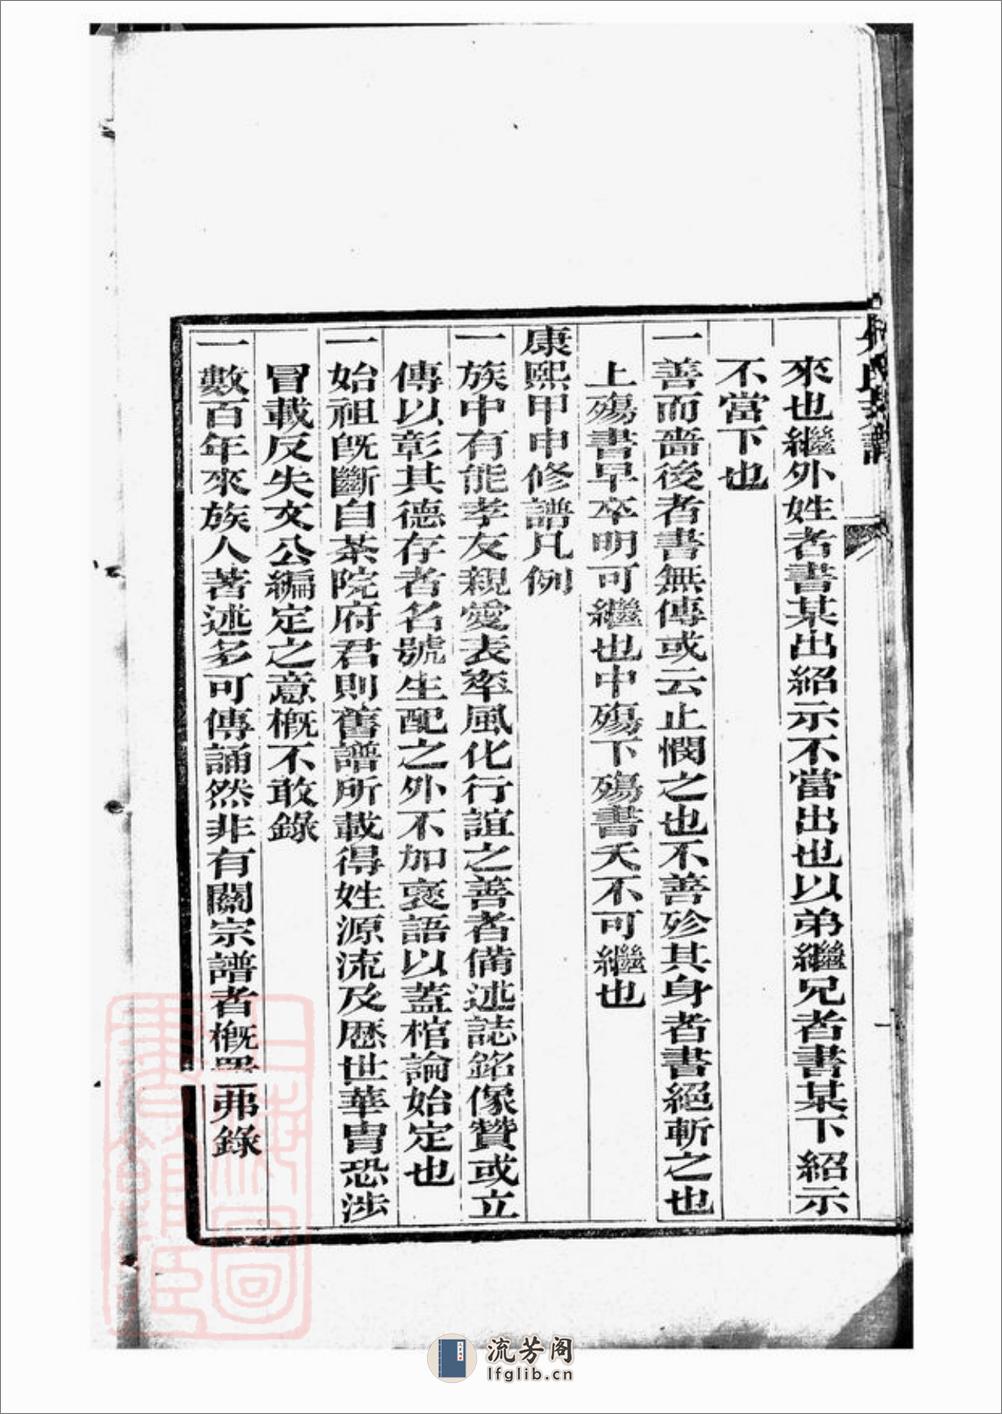 來也繼外姓者書某出紹示不當出也以弟繼兄者書某下紹示
不當下也
一善而嗇後者書無傳或云止憫之也不善殄其身者書絕斬之也
上殤書早卒明可繼也中殤下殤書夭不可繼也
康熙甲申修譜凡例
一族中有能孝友親愛表率風化行誼之善者備述誌銘像贊或立
傳以彰其德存者名號生配之外不加褒語以蓋棺論始定也
一始祖旣斷自茶院府君則舊譜所載得姓源流及歷世華胄恐涉
冒載反失文公編定之意槪不敢錄
一數百年來族人著述多可傳誦然非有關宗譜者槪弗錄
上海圖書館藏
流芳阁
lfglib.cn